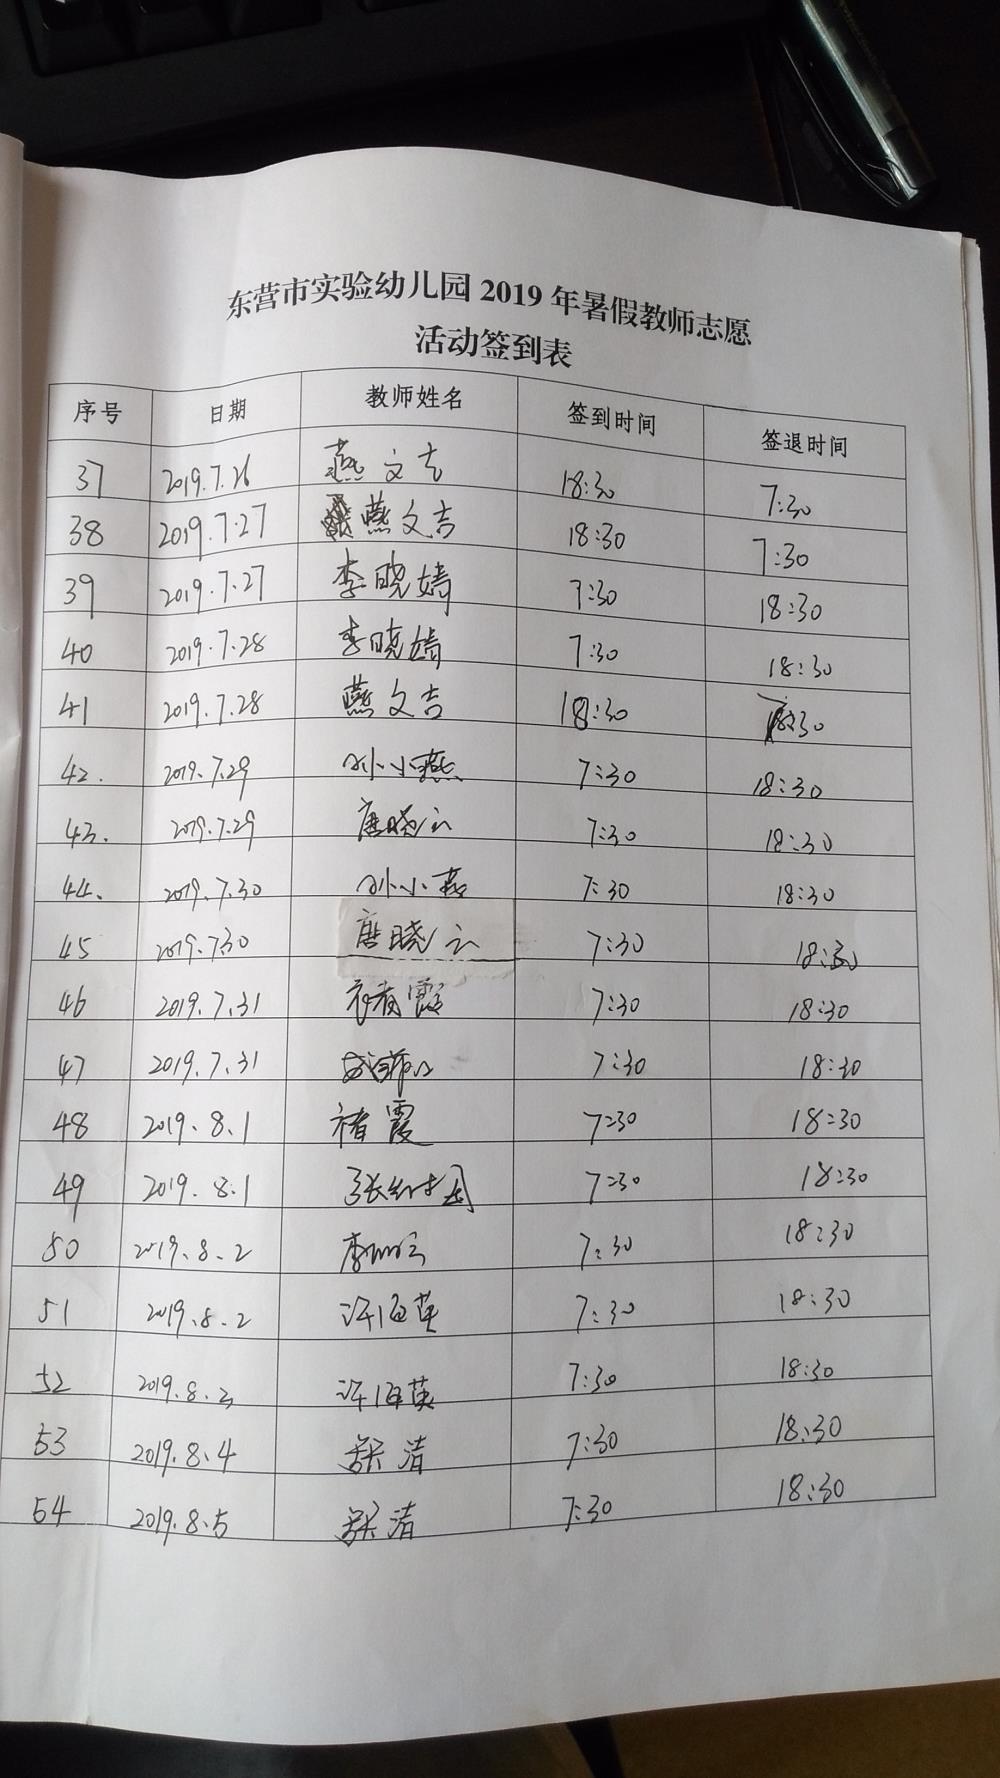 东营市实验幼儿园 2019 年暑假教师志愿
活动签到表
序号 日期 教师姓名 签到时间 签退时间
37 2019.7.26 燕文吉 18:30 7:30
38 2019.7.27 燕文吉 18:30 7:30
39 2019.7.27 李晓嫣 7:30 18:30
40 2019.7.28 李晓嫣 7:30 18:30
41 2019.7.28 燕文吉 18:30
42. 2019.7.29 孙小燕 7:30 18:30
43. 2019.7.29 唐晓云 7:30 18:30
44. 2019.7.30 孙小燕 7:30 18:30
45 2019.7.30 唐晓云 7:30 18:30
46 2019.7.31 7:30 18:30
47 2019.7.31 7:30 18:30
48 2019.8.1 褚霞 7:30 18:30
49 2019.8.1 7:30 18:30
50 2019.8.2 7:30 18:30
51 2019.8.2 许海英 7:30 18:30
52 2019.8.3 许海英 7:30 18:30
53 2019.8.4 清 7:30 18:30
54 2019.8.5 清 7:30 18:30